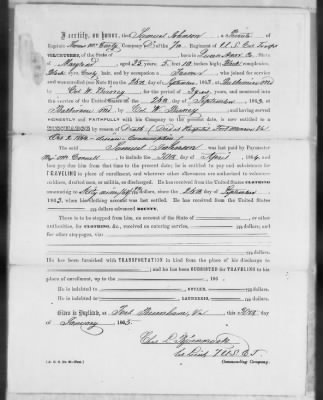 I certify, on honor, that Samuel Johnson a Private of
Captain Company of the 7th Regiment of U.S. Col Troops
VOLUNTEERS, of the State of born in Queen Ann Co State of
Maryland aged 25 years, 5 feet 10 inches high, Black complexion,
Black eyes, Curly hair, and by occupation a Farmer was joined for service
and enrolled (see Note 2) on the 26th day of September 1863, at Baltimore Md
by Col W. Birney for the period of 3 years, and mustered into
the service of the United States on the 26th day of September, 1863, at
Baltimore Md, by Col W. Birney, and having served
HONESTLY and FAITHFULLY with his Company to the present date, is now entitled to a
DISCHARGE by reason of Death
The said Samuel Johnson was last paid by Paymaster
Maj to include the day of April, 1864, and
has pay due him from that time to the present date; he is entitled to pay and subsistence for
TRAVELING to place of enrolment, and whatever other allowances are authorized to volunteer
soldiers, drafted men, or militia, so discharged. He has received from the United States CLOTHING
amounting to dollars, since the 26th day of September
1863, when his clothing account was last settled. He has received from the United States
dollars advanced BOUNTY.
There is to be stopped from him, on account of the State of , or other
authorities, for CLOTHING, &c., received on entering service, dollars; and
for other stoppages, viz:
dollars.
He has been furnished with TRANSPORTATION in kind from the place of his discharge to
; and he has been SUBSISTED for TRAVELING to his
place of enrolment, up to the 186 .
He is indebted to , SUTLER, dollars.
He is indebted to , LAUNDRESS, dollars.
Given in Duplicate, at Fort Burnham, Va, this 30th day
of January 1865.
1st Lieut 7 U.S.C.T.
Commanding Company.